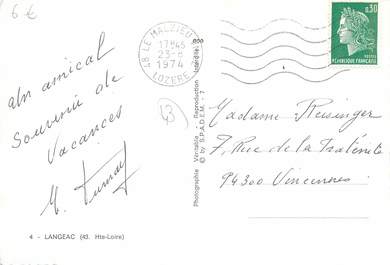 6 €
48 LE MALZIEU-V
17H45
23-8
1974
LOZERE
0,30
POSTES
REPUBLIQUE FRANÇAISE
un amical
Souvenir de
Vacances
M.
43
Photographie Véritable - Reproduction Interdite
© by S.P.A.D.E.M. - 7
Madame Reisinger
7, Rue de la Fraternité
94300 Vincennes
4 - LANGEAC (43. Hte-Loire)